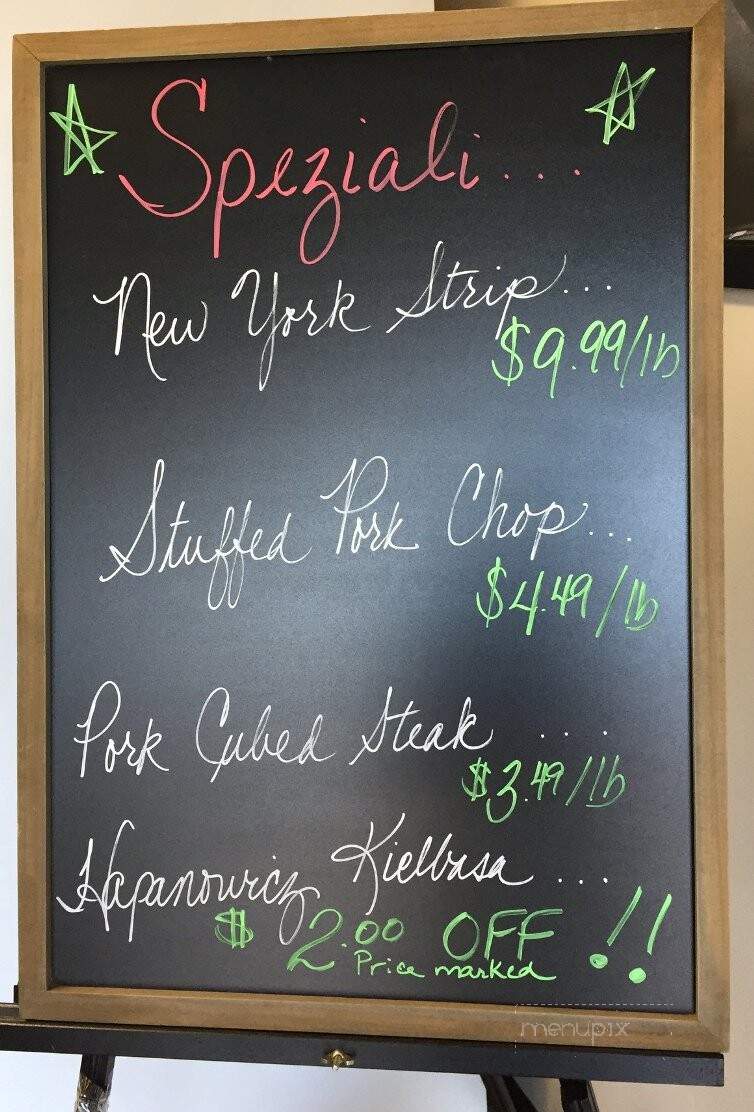 Speziali...
New York Strip...
$9.99/lb
Stuffed Pork Chop...
$4.49/lb
Pork Cubed Steak.....
$3.49/lb
Hapanowicz Kielbasa...
$2.00 OFF!!
Price marked
menupix